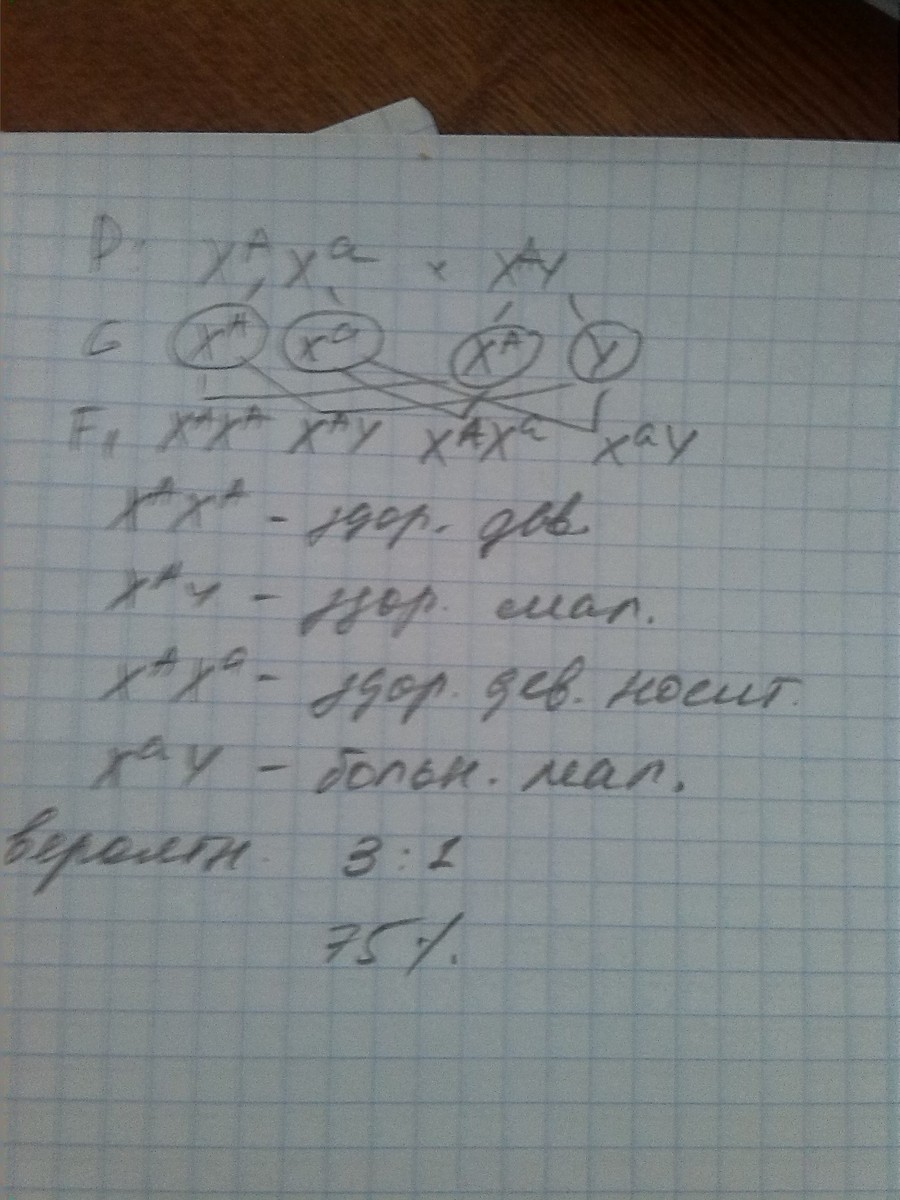 P: X^A X^a × X^A Y
G X^A X^a X^A Y
F₁ X^A X^A X^A Y X^A X^a X^a Y
X^A X^A - здор. дев
X^A Y - здор. мал.
X^A X^a - здор. дев. носит.
X^a Y - больн. мал.
вероятн. 3 : 1
75 %.